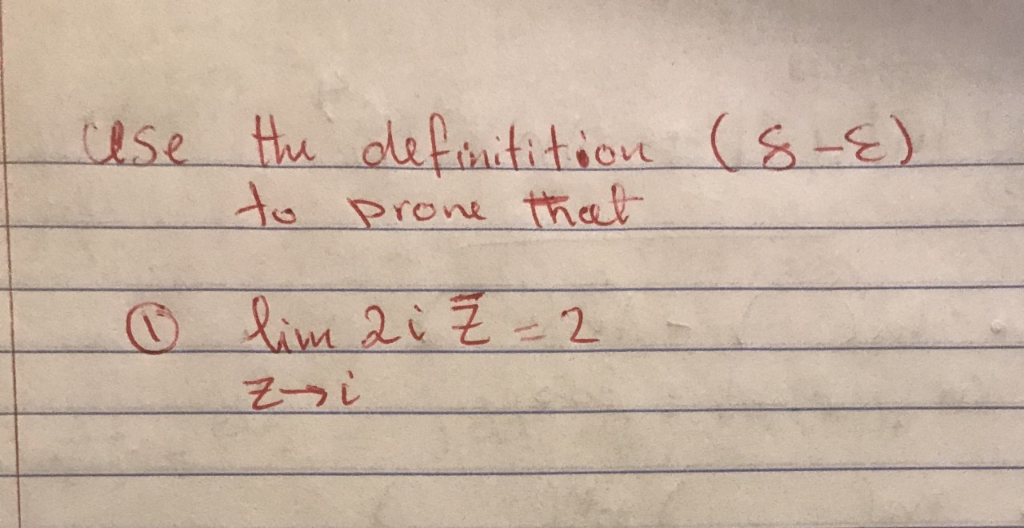 Use the definitition (δ-ε)
to prove that
① lim 2i z̅ = 2
z→i